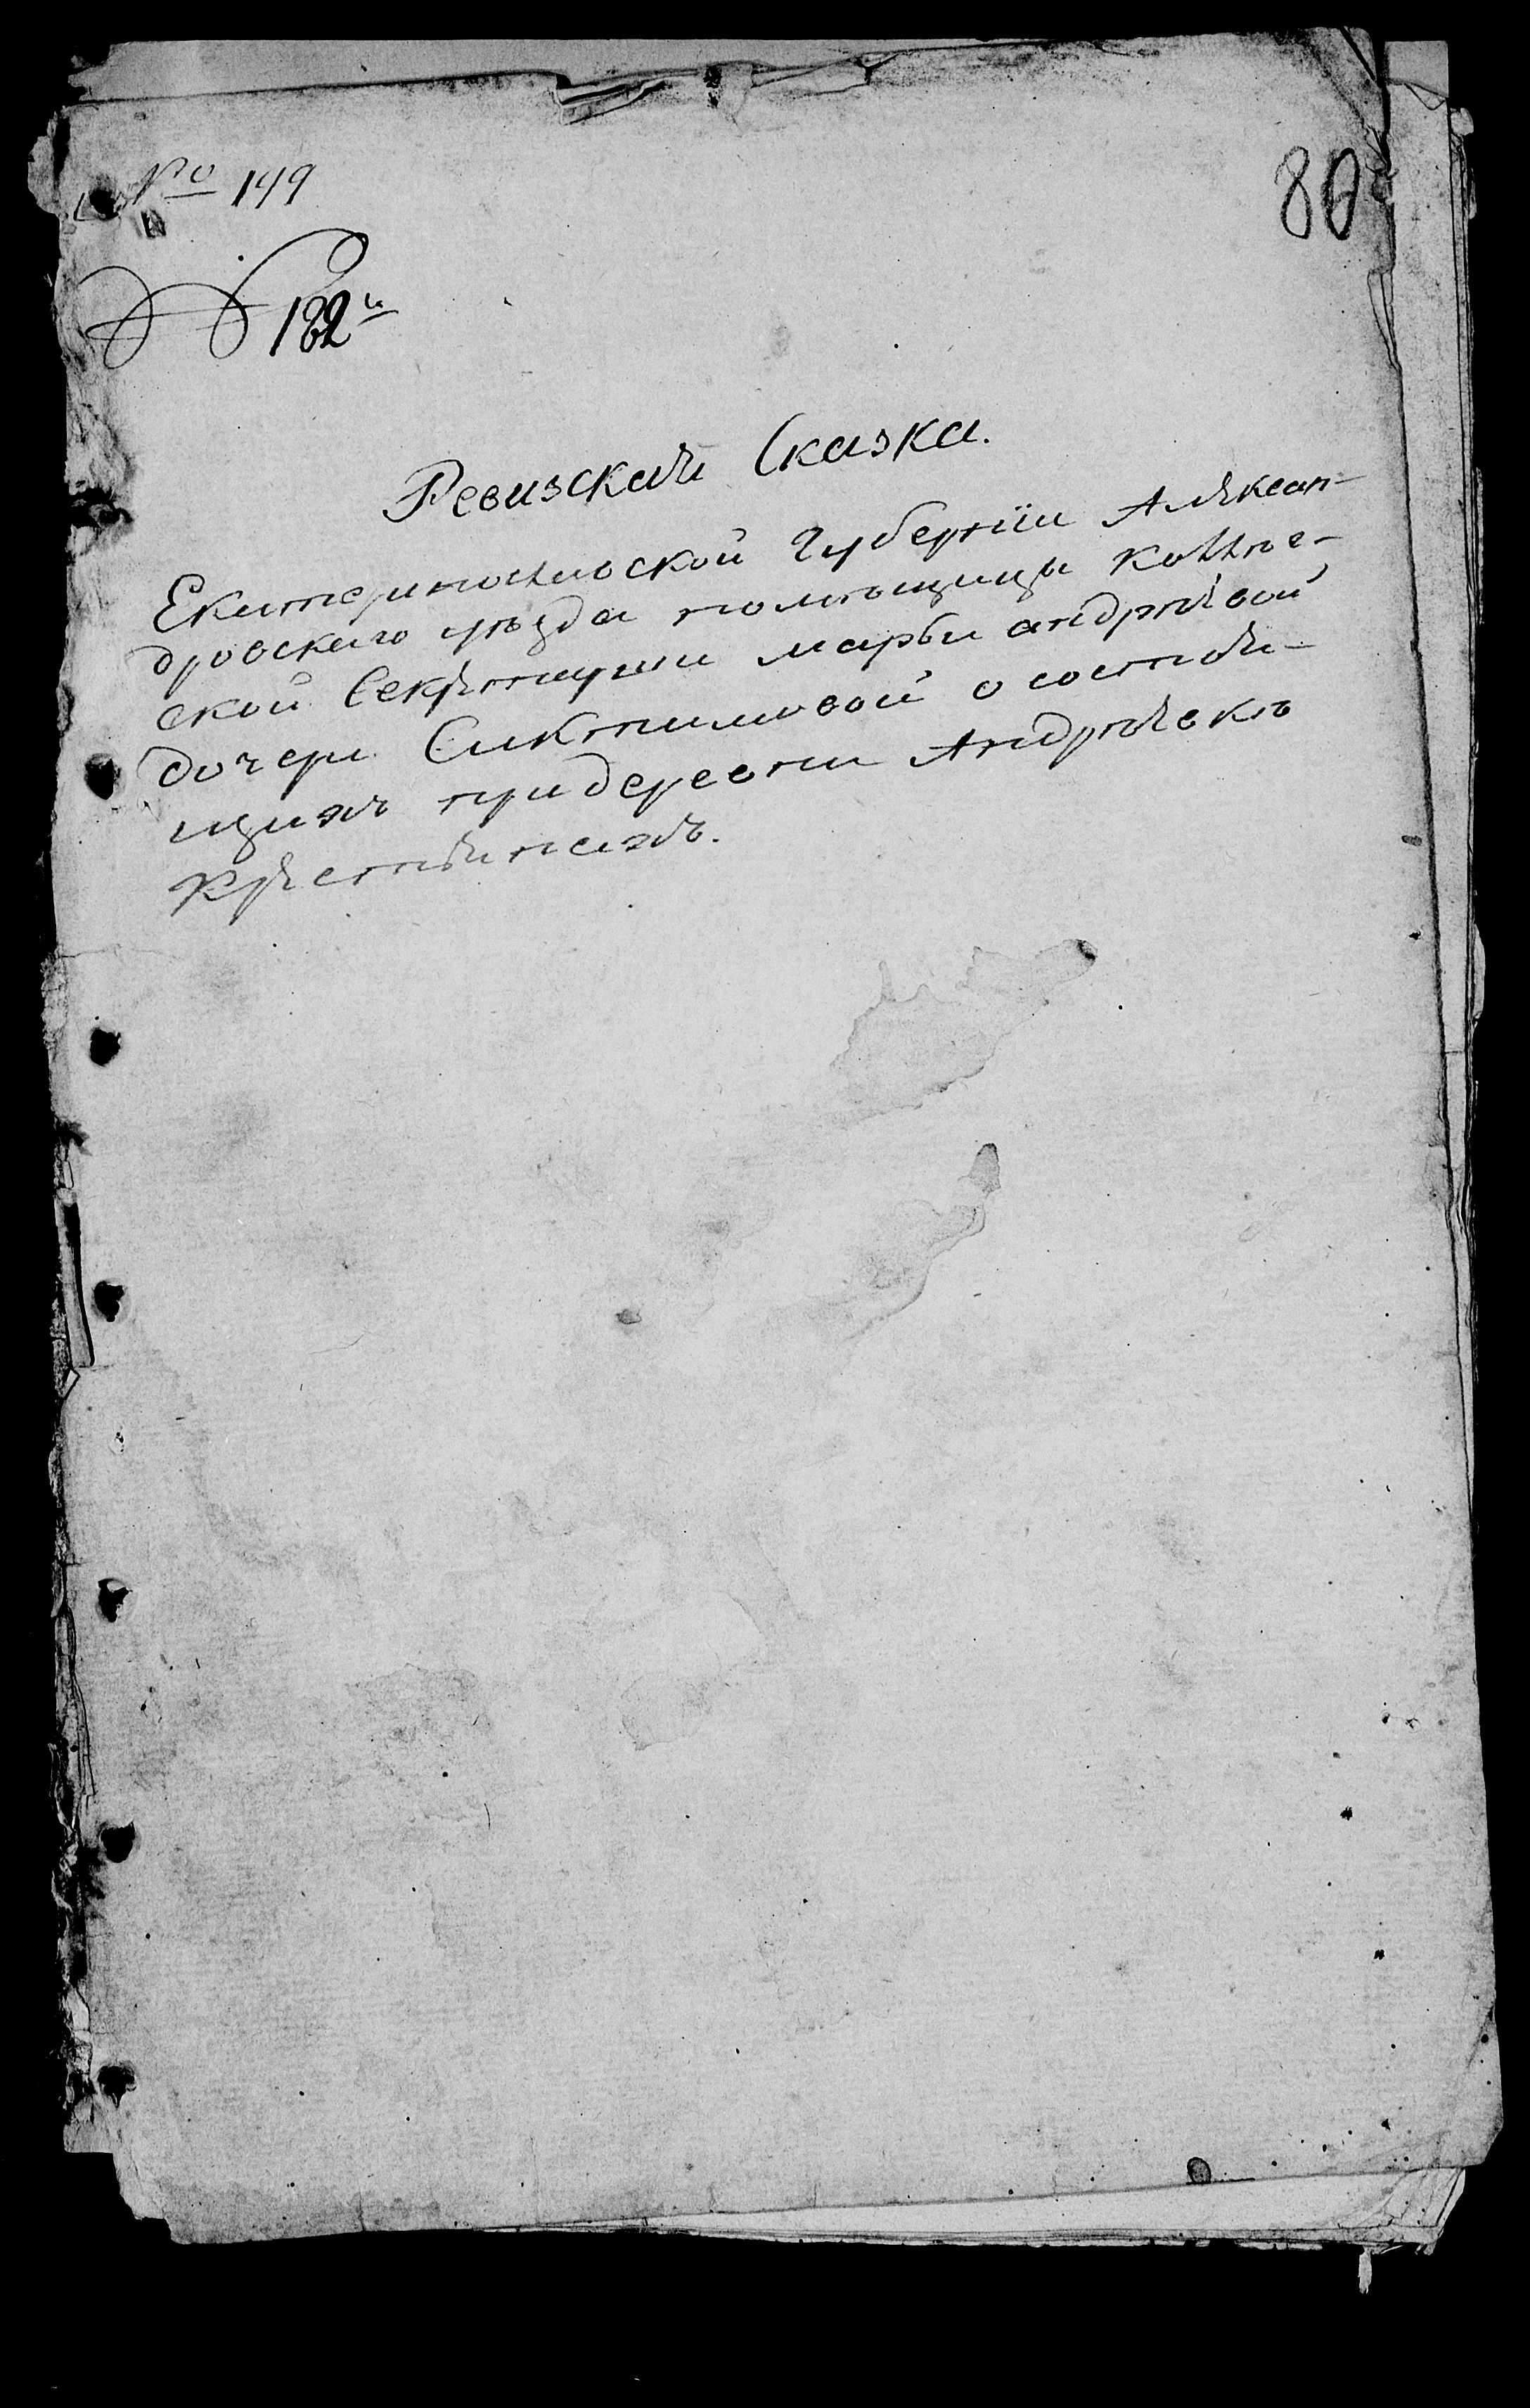 № 149
80
№ 182й
Ревизская Сказка.
Екатеринославской Губернїи Алексан-
дровского уѣзда помѣщицы коллѣе-
ской Секретарши марьи андрѣевой
дочери Сиктимовой о состоя-
щихъ придеревни Андрѣевкѣ
Крестьянахъ.